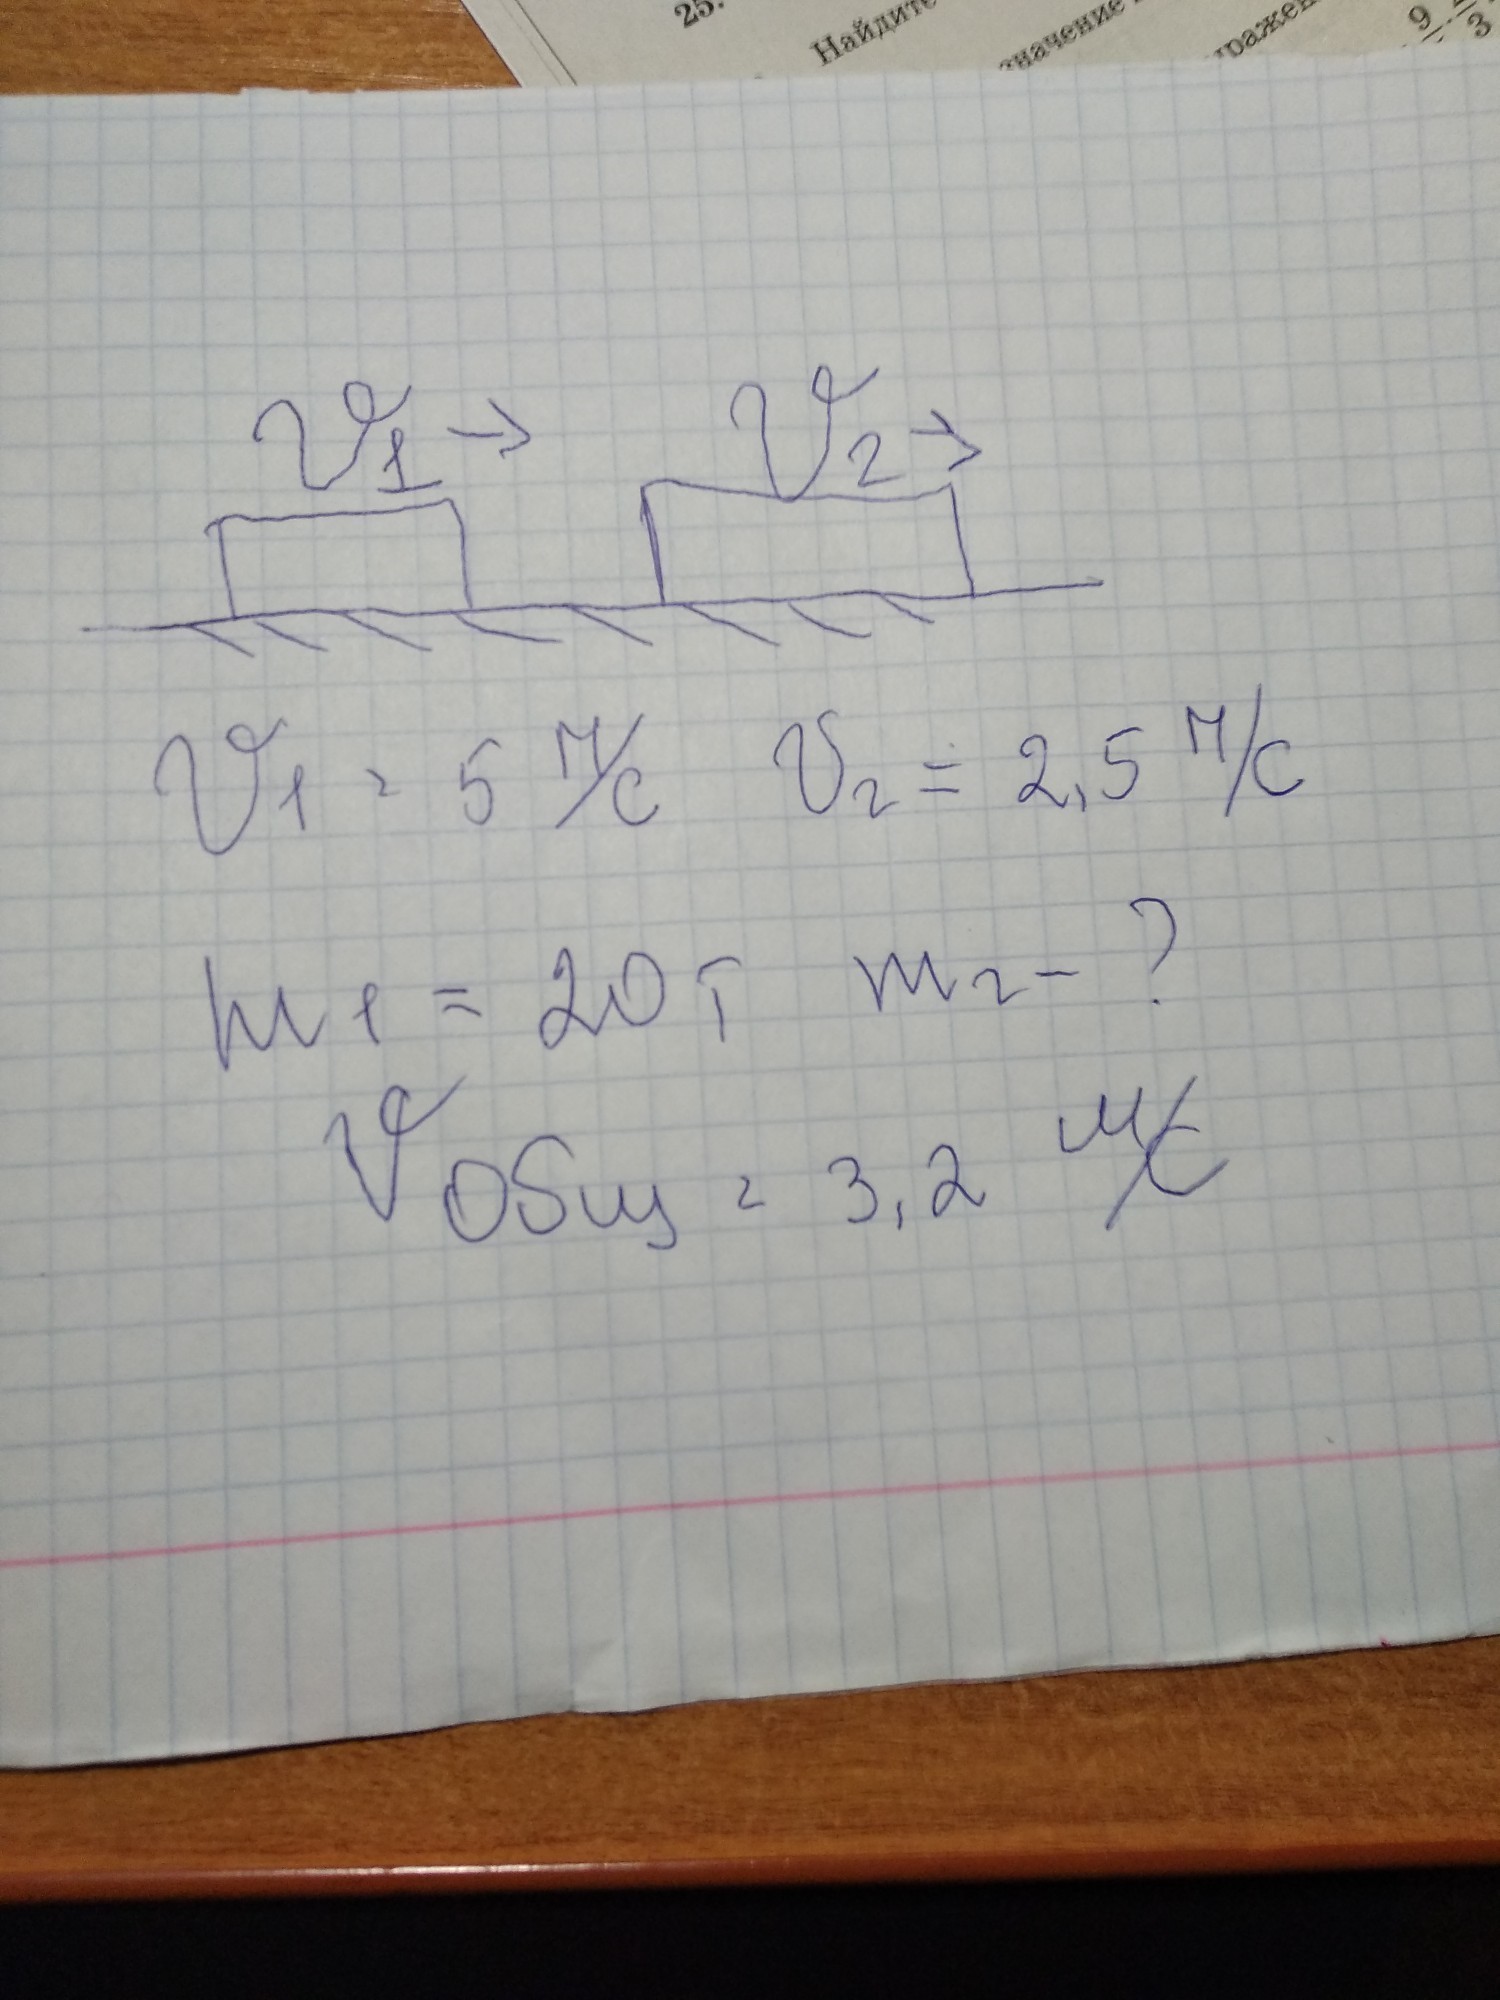 25.
Найдите значение
9
3
v1 → v2 →
v1 = 5 м/с v2 = 2,5 м/с
m1 = 20 т m2 - ?
v общ = 3,2 м/с